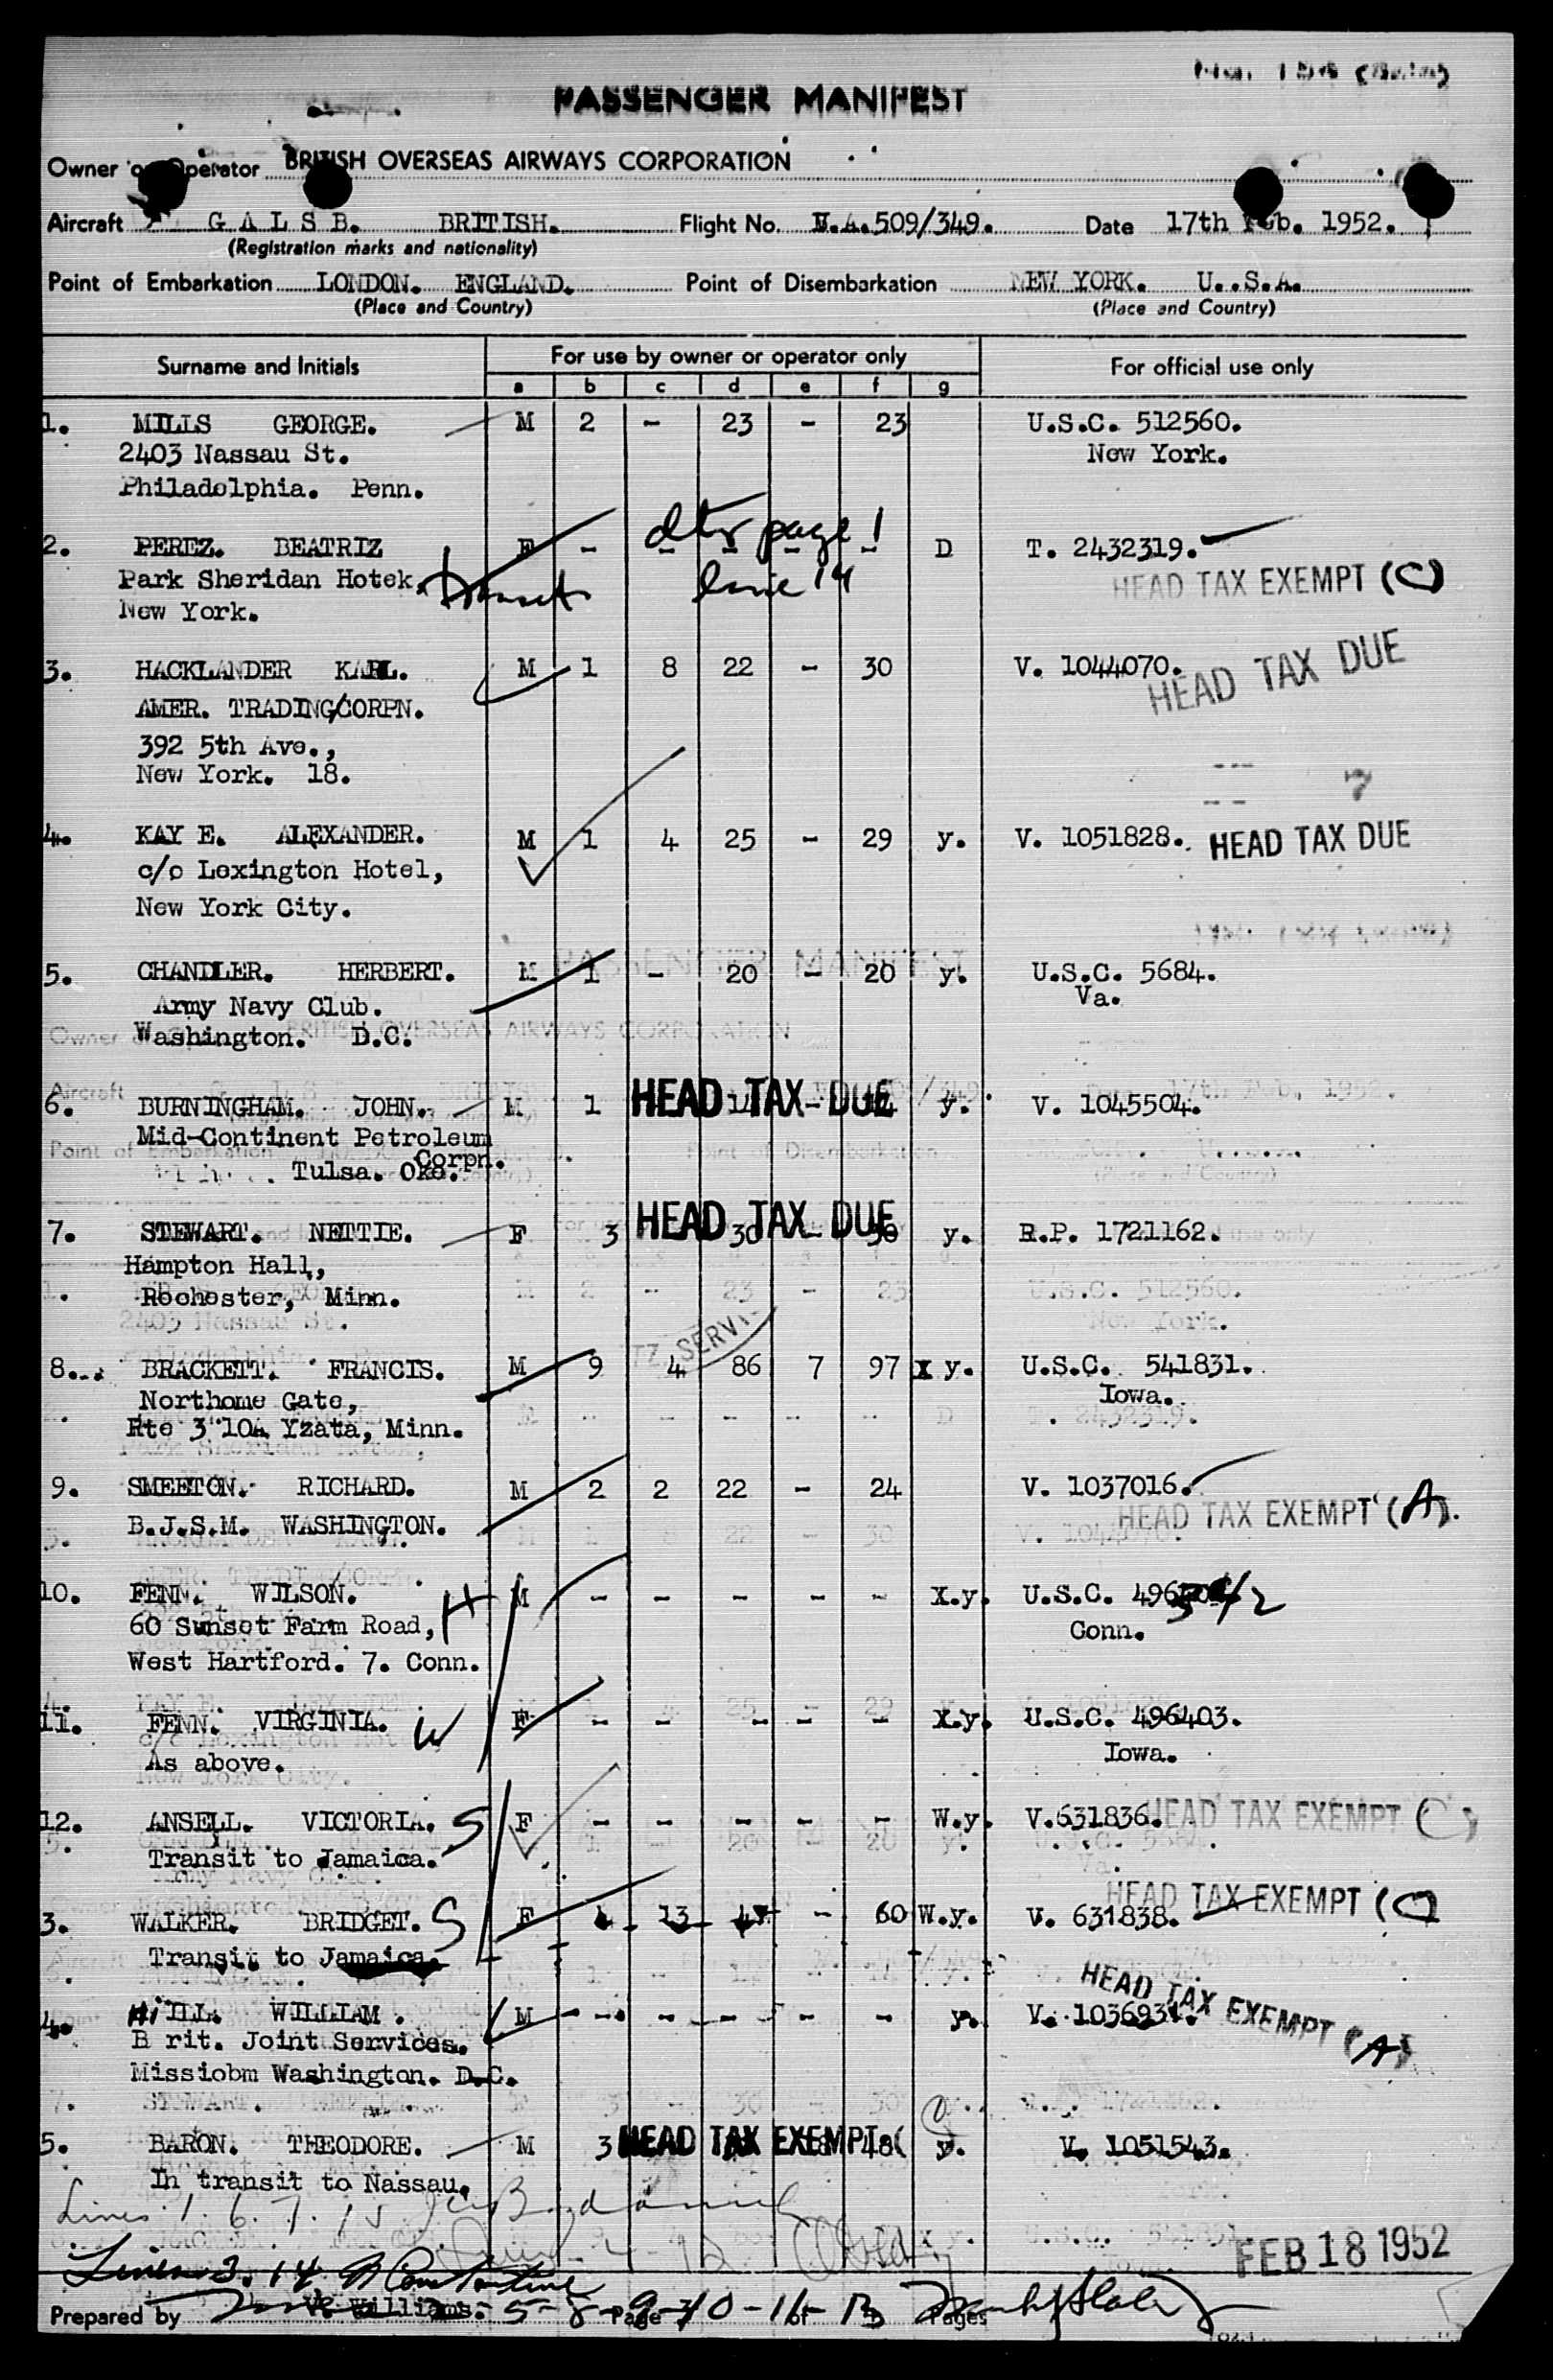 PASSENGER MANIFEST
Owner or Operator BRITISH OVERSEAS AIRWAYS CORPORATION
Aircraft G A L S B. BRITISH. Flight No. B.A.509/349. Date 17th Feb. 1952.
(Registration marks and nationality)
Point of Embarkation LONDON. ENGLAND. Point of Disembarkation NEW YORK. U..S.A.
(Place and Country) (Place and Country)
Surname and Initials For use by owner or operator only For official use only
a b c d e f g
1. MILLS GEORGE. M 2 - 23 - 23 U.S.C. 512560.
2403 Nassau St. New York.
Philadelphia. Penn.
dtr page 1
2. PEREZ. BEATRIZ F - - - - - D T. 2432319.
Park Sheridan Hotek. line 14 HEAD TAX EXEMPT (C)
New York.
3. HACKLANDER KARL. M 1 8 22 - 30 V. 1044070. HEAD TAX DUE
AMER. TRADING/CORPN.
392 5th Ave.,
New York. 18.
4. KAY E. ALEXANDER. M 1 4 25 - 29 y. V. 1051828. HEAD TAX DUE
c/o Lexington Hotel,
New York City.
5. CHANDLER. HERBERT. M 1 - 20 - 20 y. U.S.C. 5684.
Army Navy Club. Va.
Washington. D.C.
6. BURNINGHAM. JOHN. M 1 HEAD TAX DUE 14 - 14 y. V. 1045504.
Mid-Continent Petroleum
Corpn.
Tulsa. Oke.
7. STEWART. NETTIE. F 3 HEAD TAX DUE 30 - 30 y. R.P. 1721162.
Hampton Hall,
Rochester, Minn.
8. BRACKETT. FRANCIS. M 9 4 86 7 97 X y. U.S.C. 541831.
Northome Gate, Iowa.
Rte 3 10A Yzata, Minn.
9. SMEETON. RICHARD. M 2 2 22 - 24 V. 1037016.
B.J.S.M. WASHINGTON. HEAD TAX EXEMPT (A).
10. FENN. WILSON. H M - - - - - X.y. U.S.C. 496
60 Sunset Farm Road, Conn.
West Hartford. 7. Conn.
11. FENN. VIRGINIA. W F - - - - - X.y. U.S.C. 496403.
As above. Iowa.
12. ANSELL. VICTORIA. S F - - - - - W.y. V.631836. HEAD TAX EXEMPT (C)
Transit to Jamaica.
HEAD TAX EXEMPT (C)
3. WALKER. BRIDGET. S F 4 13 47 - 60 W.y. V. 631838.
Transit to Jamaica.
4. HiILL. WILLIAM. M - - - - - y. V. 1036931. HEAD TAX EXEMPT (A)
B rit. Joint Services.
Missiobm Washington. D.C.
5. BARON. THEODORE. M 3 HEAD TAX EXEMPT ( 48 y. V. 1051543.
In transit to Nassau.
Lines 1. 6. 7. 15
FEB 18 1952
Lines 3. 14
Prepared by Williams. 5-8-9-10-11-13 Page of Pages